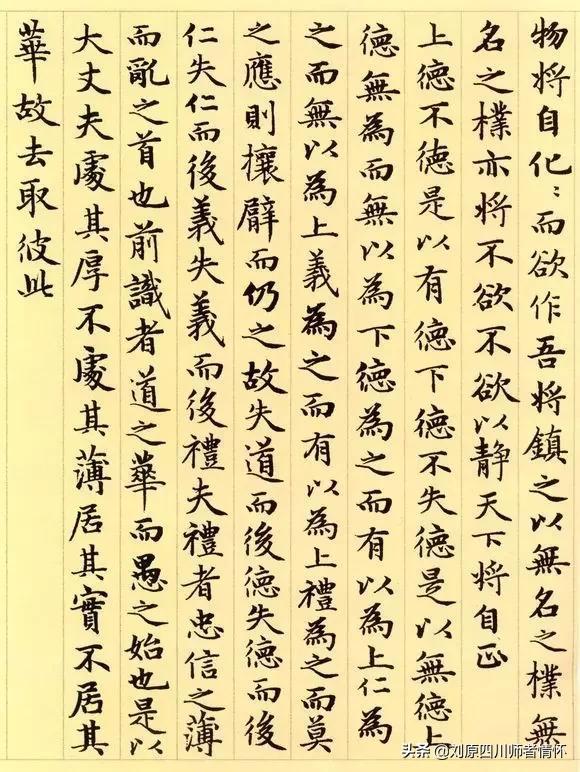 物将自化〻而欲作吾将鎮之以無名之樸無
名之樸亦将不欲不欲以静天下将自正
上德不德是以有德下德不失德是以無德上
德無為而無以為下德為之而有以為上仁為
之而無以為上義為之而有以為上禮為之而莫
之應則攘臂而仍之故失道而後德失德而後
仁失仁而後義失義而後禮夫禮者忠信之薄
而亂之首也前識者道之華而愚之始也是以
大丈夫處其厚不處其薄居其實不居其
華故去取彼此
头条 @刘原四川师者情怀